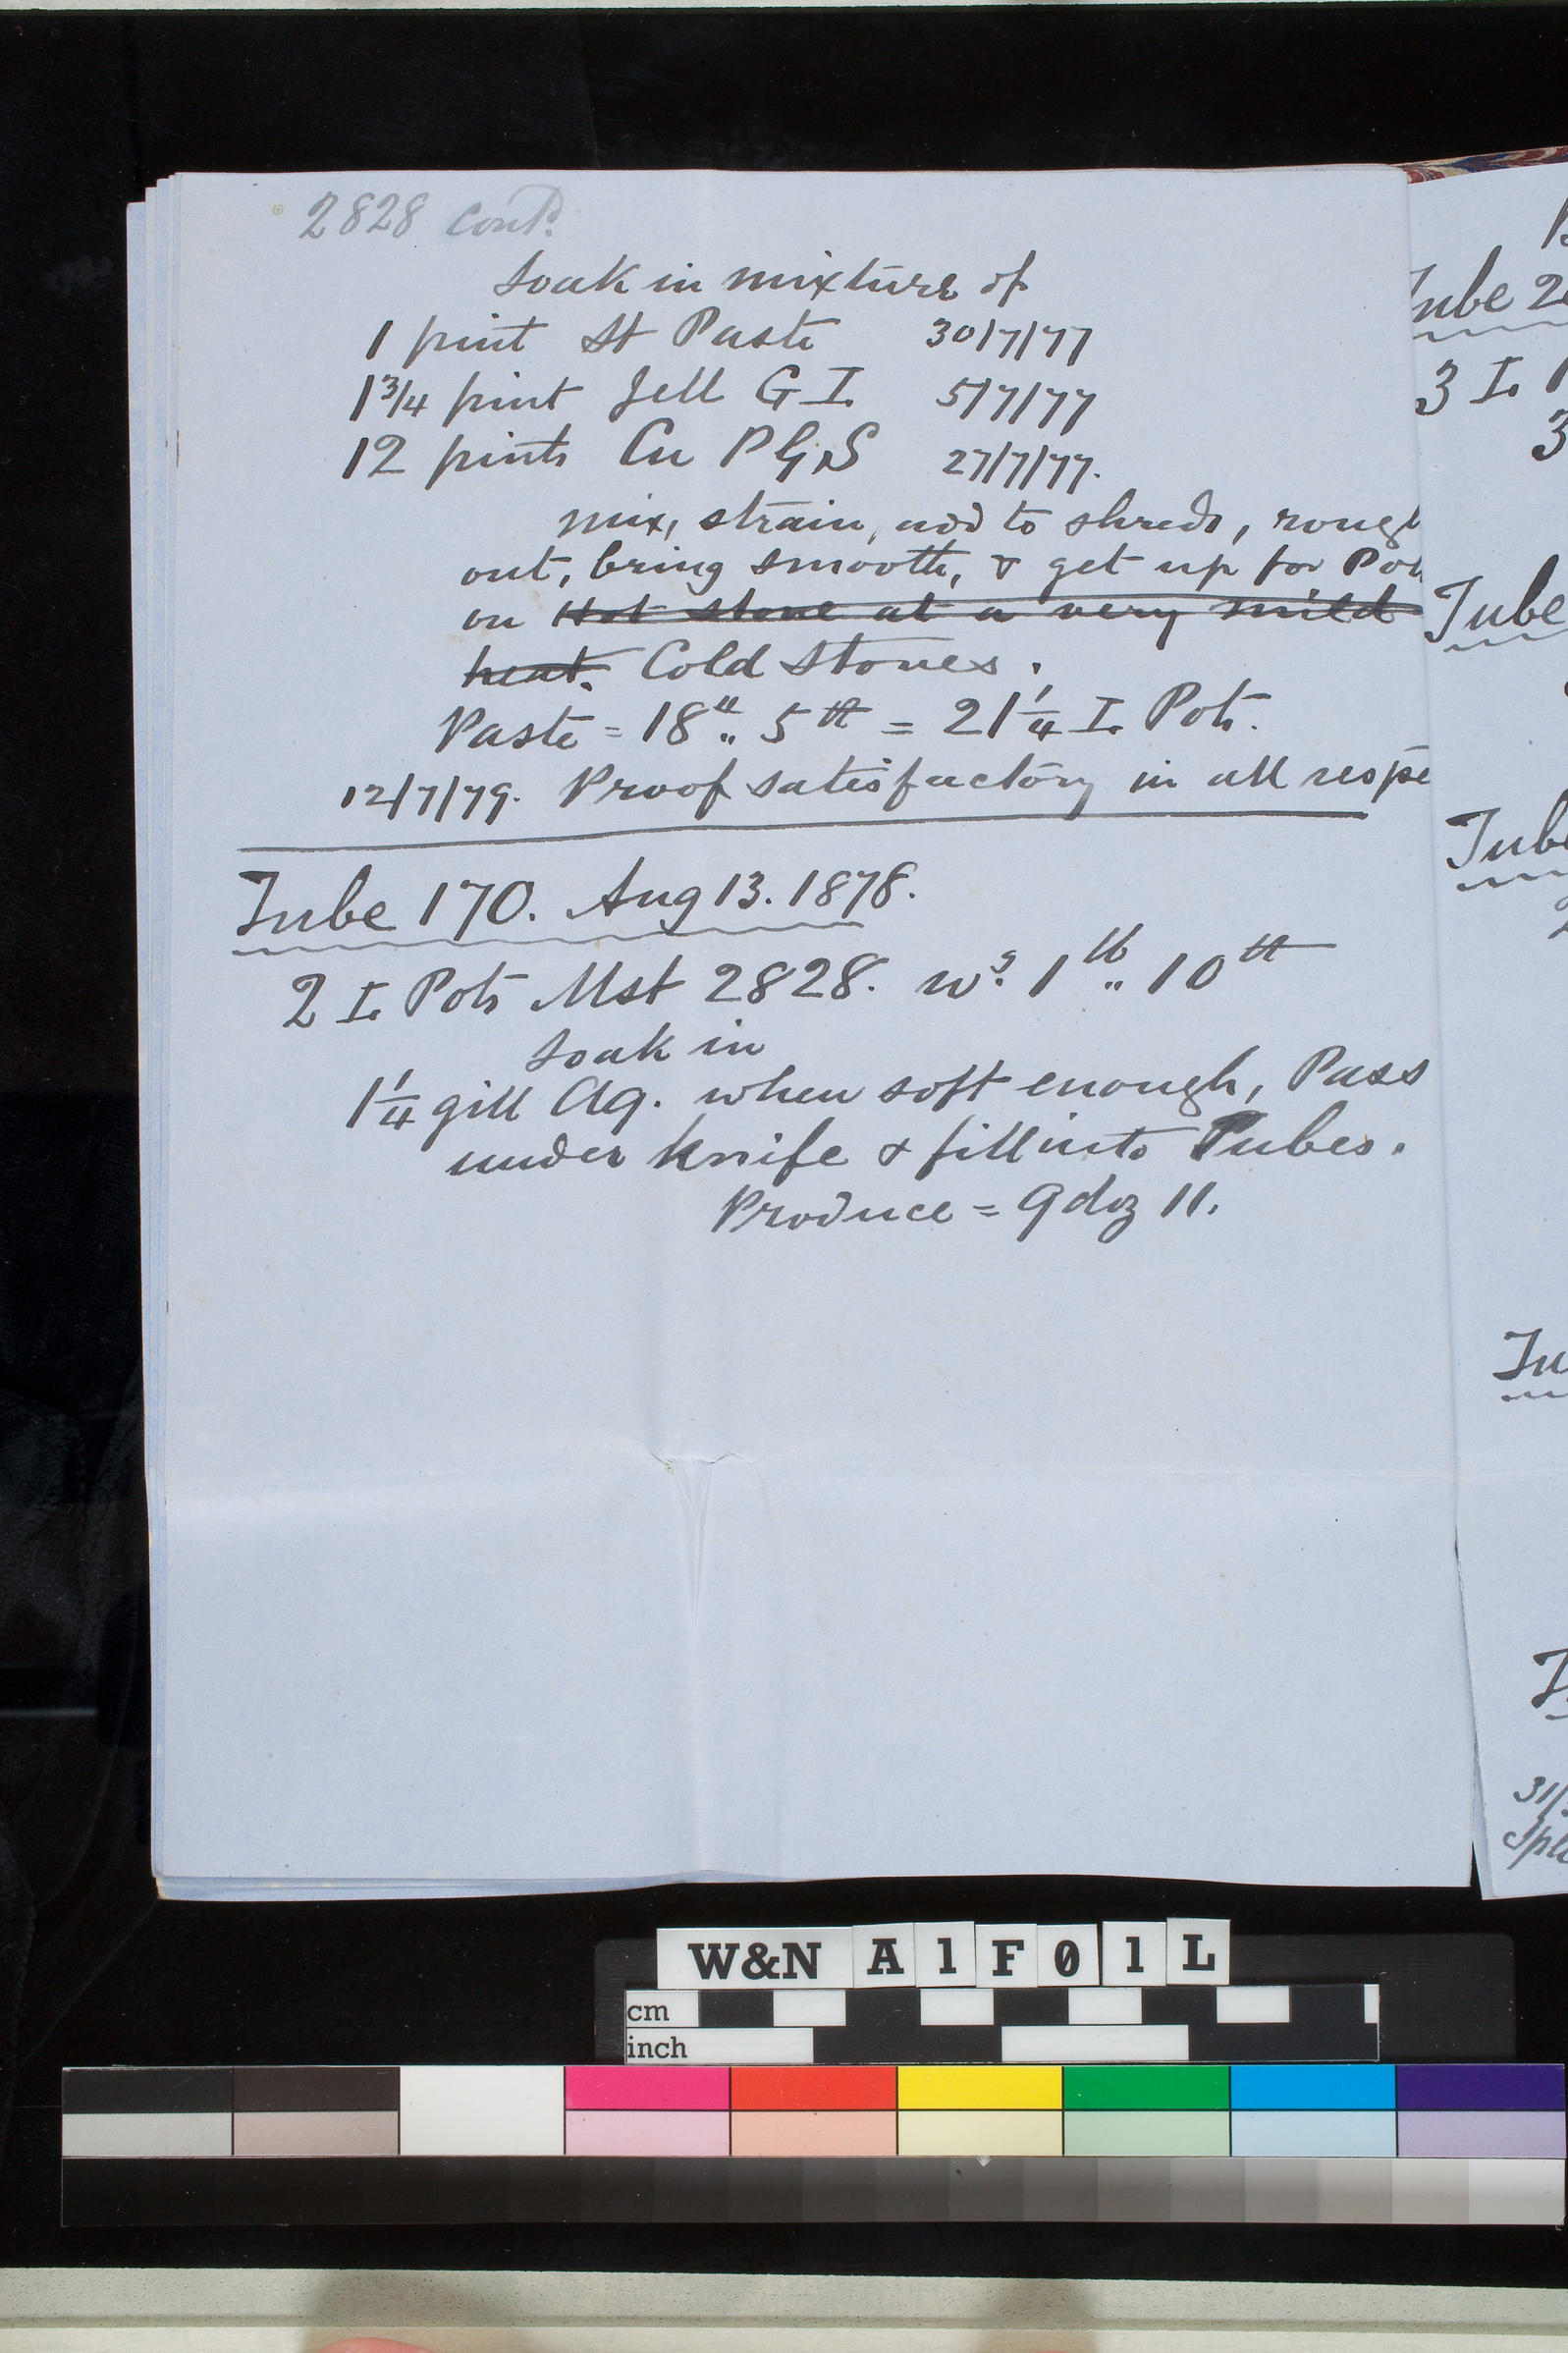 2828 cont.
Soak in mixture of
1 pint St Paste 30/7/77
1 3/4 pint Jell G I. 5/7/77
12 pints Cu P G S 27/7/77.
mix, strain, add to shreds, rough
out, bring smooth, & get up for Pots
on Hot stone at a very mild
heat. Cold Stones.
Paste = 18 " 5 = 21 1/4 I. Pots.
12/7/79. Proof satisfactory in all respe
Tube 170. Aug 13. 1878.
2 I. Pots Mst 2828. wg. 1 lb .. 10
Soak in
1 1/4 gill Aq. when soft enough, Pass
under knife & fill into Tubes.
Produce = 9 doz 11.
Tube
3 I.
3
Tube
31/
W&N A1F01L
cm
inch